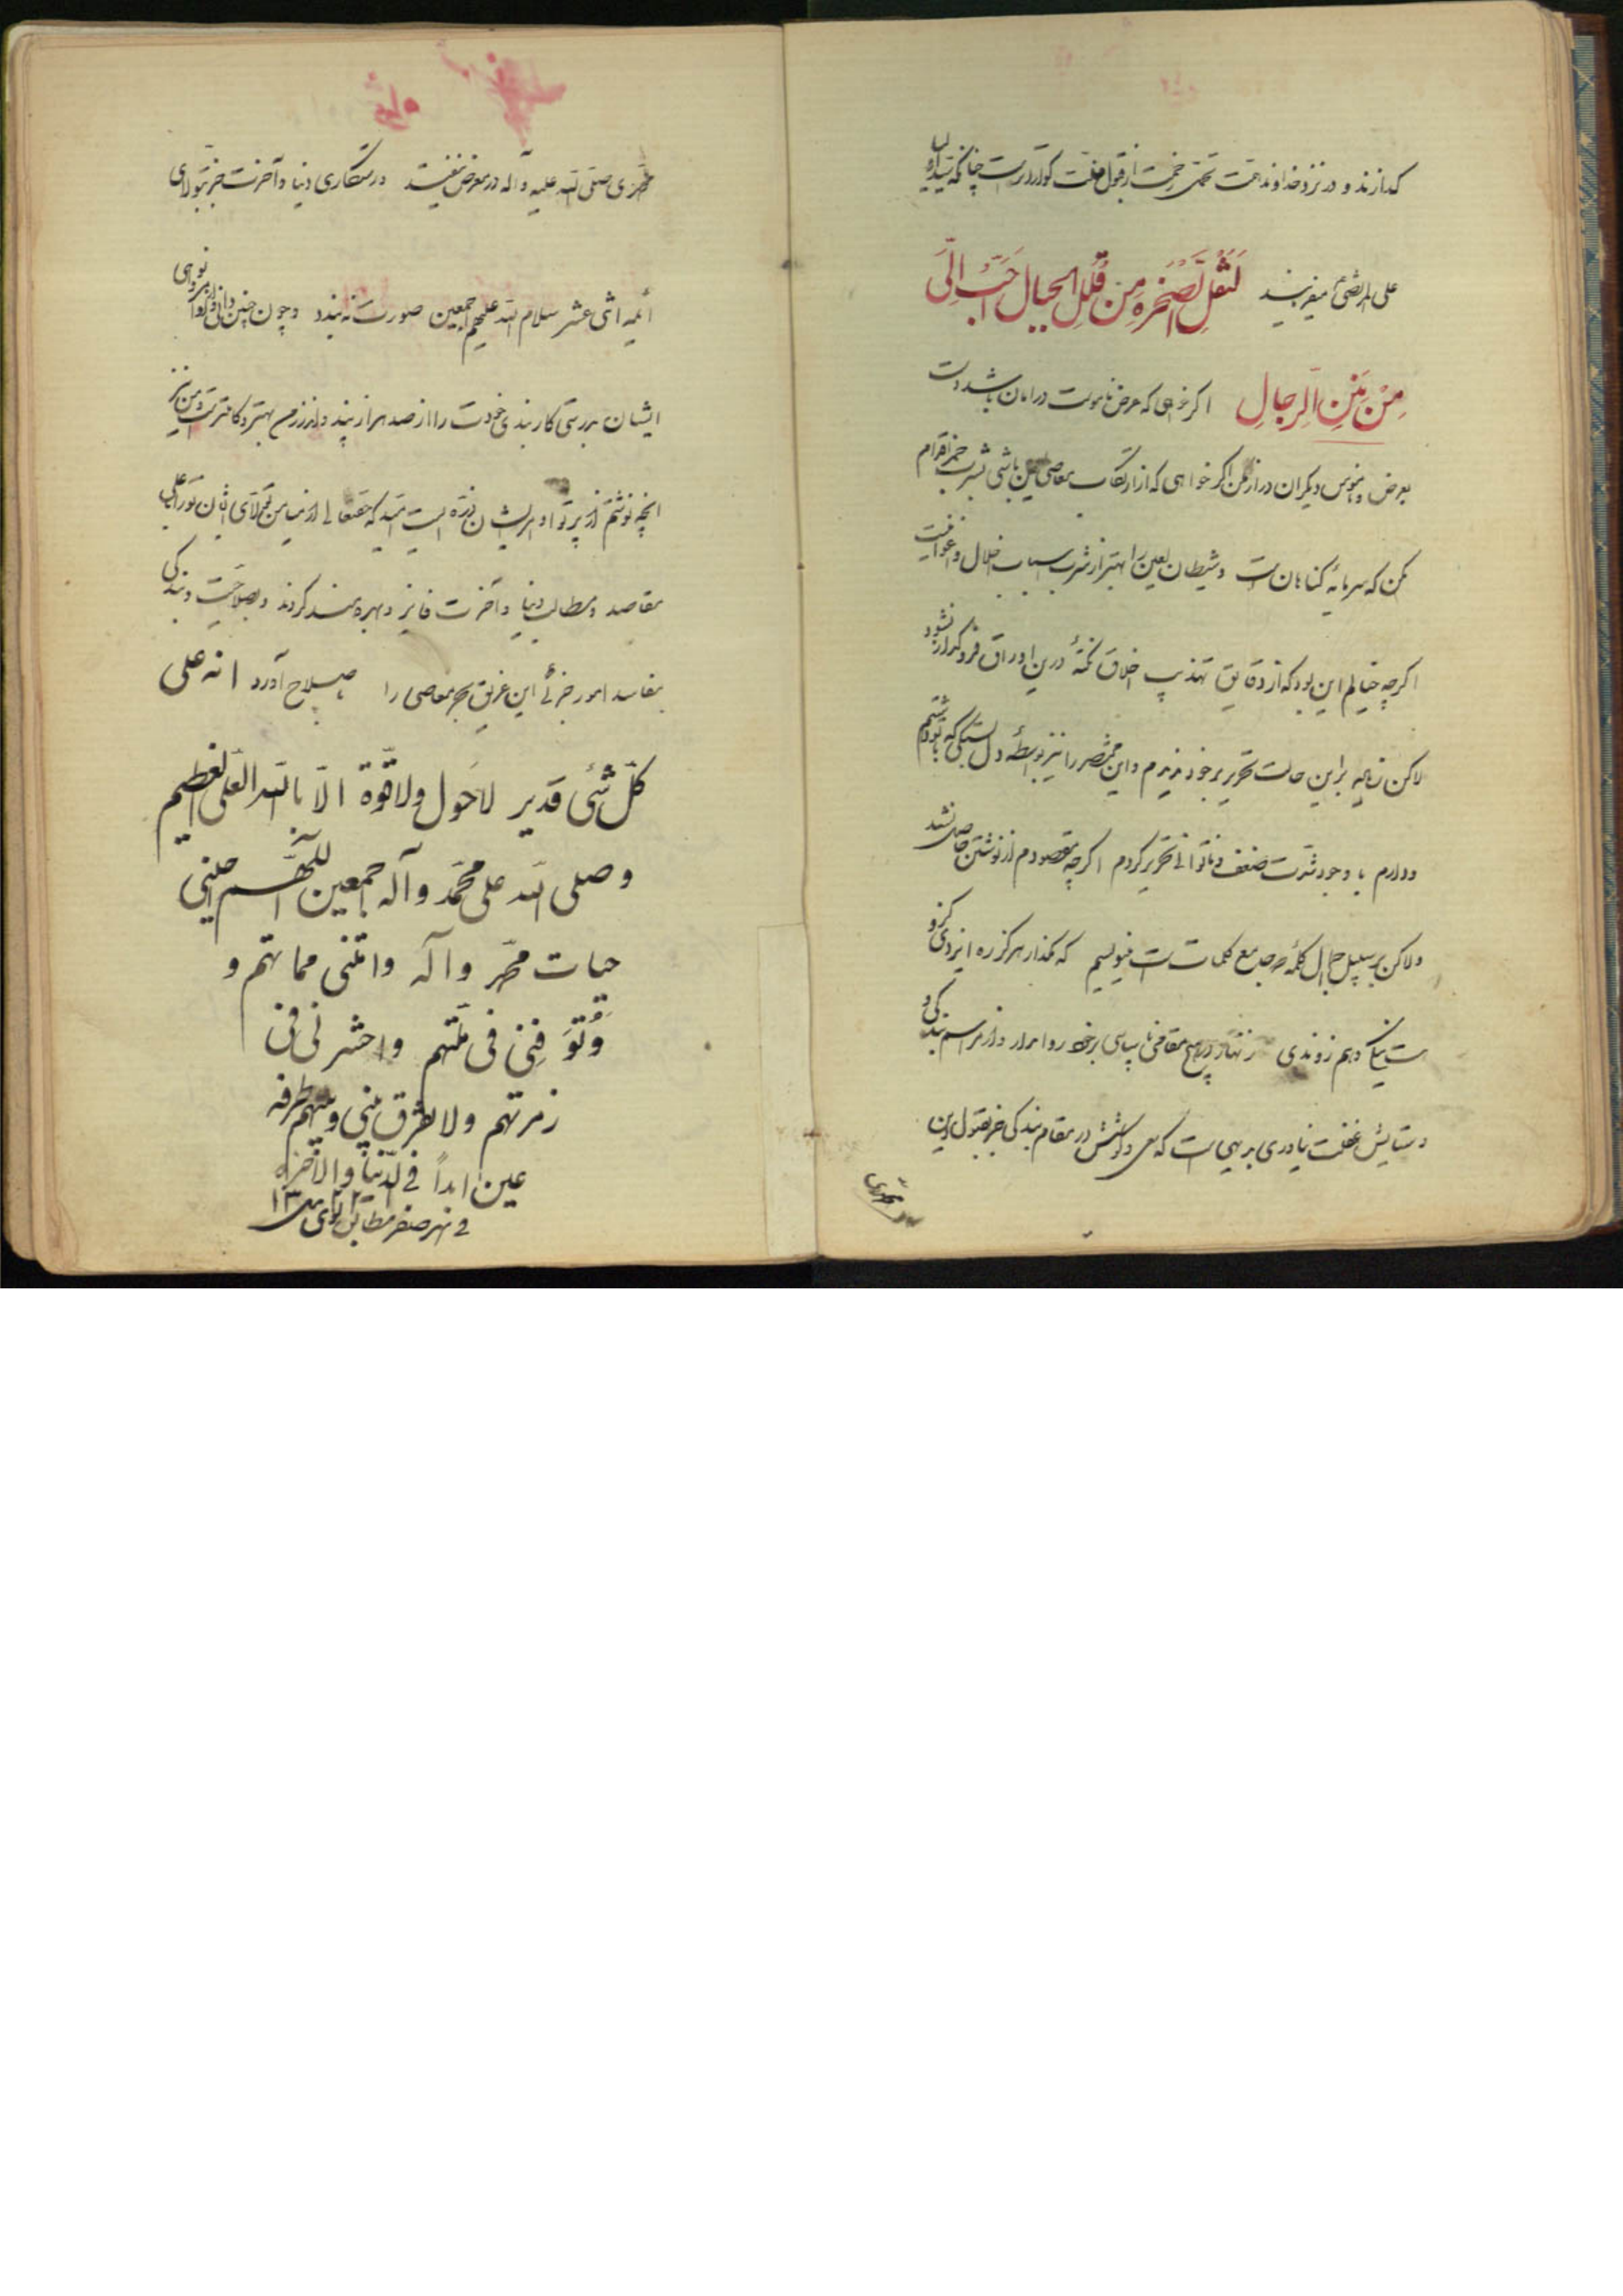 که بازند و در نزد خداوند همت تحمل زحمت از قبول منت گواراتر است چنانکه سید اولیا
علی المرتضی میفرمایند لَنَقْلُ الصَّخْرِهِ مِنْ قُلَلِ الجبال اَحَبُّ اِلَیَّ
مِنْ مِنَنِ الرجالِ اگر خواهی که عرض ناموست در امان باشد دست
بعرض و ناموس دیگران دراز مکن اگر خواهی که از ارتکاب معاصی باشی شرب خمر اقدام
مکن که سرمایه گناهان است و شیطان لعین را بهتر از شرب اسباب اضلال و اغوا نیست
اگرچه خیالم این بود که از دقایق تهذیب اخلاق نکتهٔ درین اوراق فروگذار نشود
لاکن براین حالت تحریر برخود ندیدم و این مختصر را نیز بواسطهٔ دل بستگی که با تو داشتم
و دارم با وجود شدت ضعف و ناتوانی تحریر کردم اگرچه مقصودم از نوشتن حاصل نشد
ولاکن بر سبیل اجمال کلمهٔ که جامع کلمات است مینویسم که مگذار هرگز ره ایزدی کزو
است نیکی و هم زو بدی زنهار در هیچ مقامی ناسپاسی برخود روا مدار و از مراسم بندگی و
ستایش غفلت نیاوری بدیهی است که سعی و کوشش در مقام بندگی جز بقبول دین
محمدی صلی الله علیه و آله در معرض نیفتد و رستگاری دنیا و آخرت جز بتولای
ائمه اثنی عشر سلام الله علیهم اجمعین صورت نه بندد و چون چنین دانی و اوامر و نواهی
ایشان بدرستی کار بندی خودت را از صد هزار پند و اندرز من بهتر و کاملتر است من نیز
آنچه نوشتم از پرتو انوار ایشان ذره ایست امید که حقتعالی از میامن تولای ایشان تورا بجمیع
مقاصد و مطالب دنیا و آخرت فایز و بهره مند گرداند و بصلاحیت و بندگی
مفاسد امور جزئی این غریق بحر معاصی را باصلاح آورد انه علی
کلّ شئی قدیر لاحَول ولا قوّة الاّ بالله العَلی العَظیم
وصلی الله علی محمّد وآله اجمعین اللّهم احینی
حیات محمّد وآله وامتنی مماتهم و
وَتُوَفِنی فی ملّتهم واحشرنی فی
زمرتهم ولا تفرق بینی وبینهم طرفه
عین ابداً فی الدّنیا والآخره
فی شهر صفر مطابق